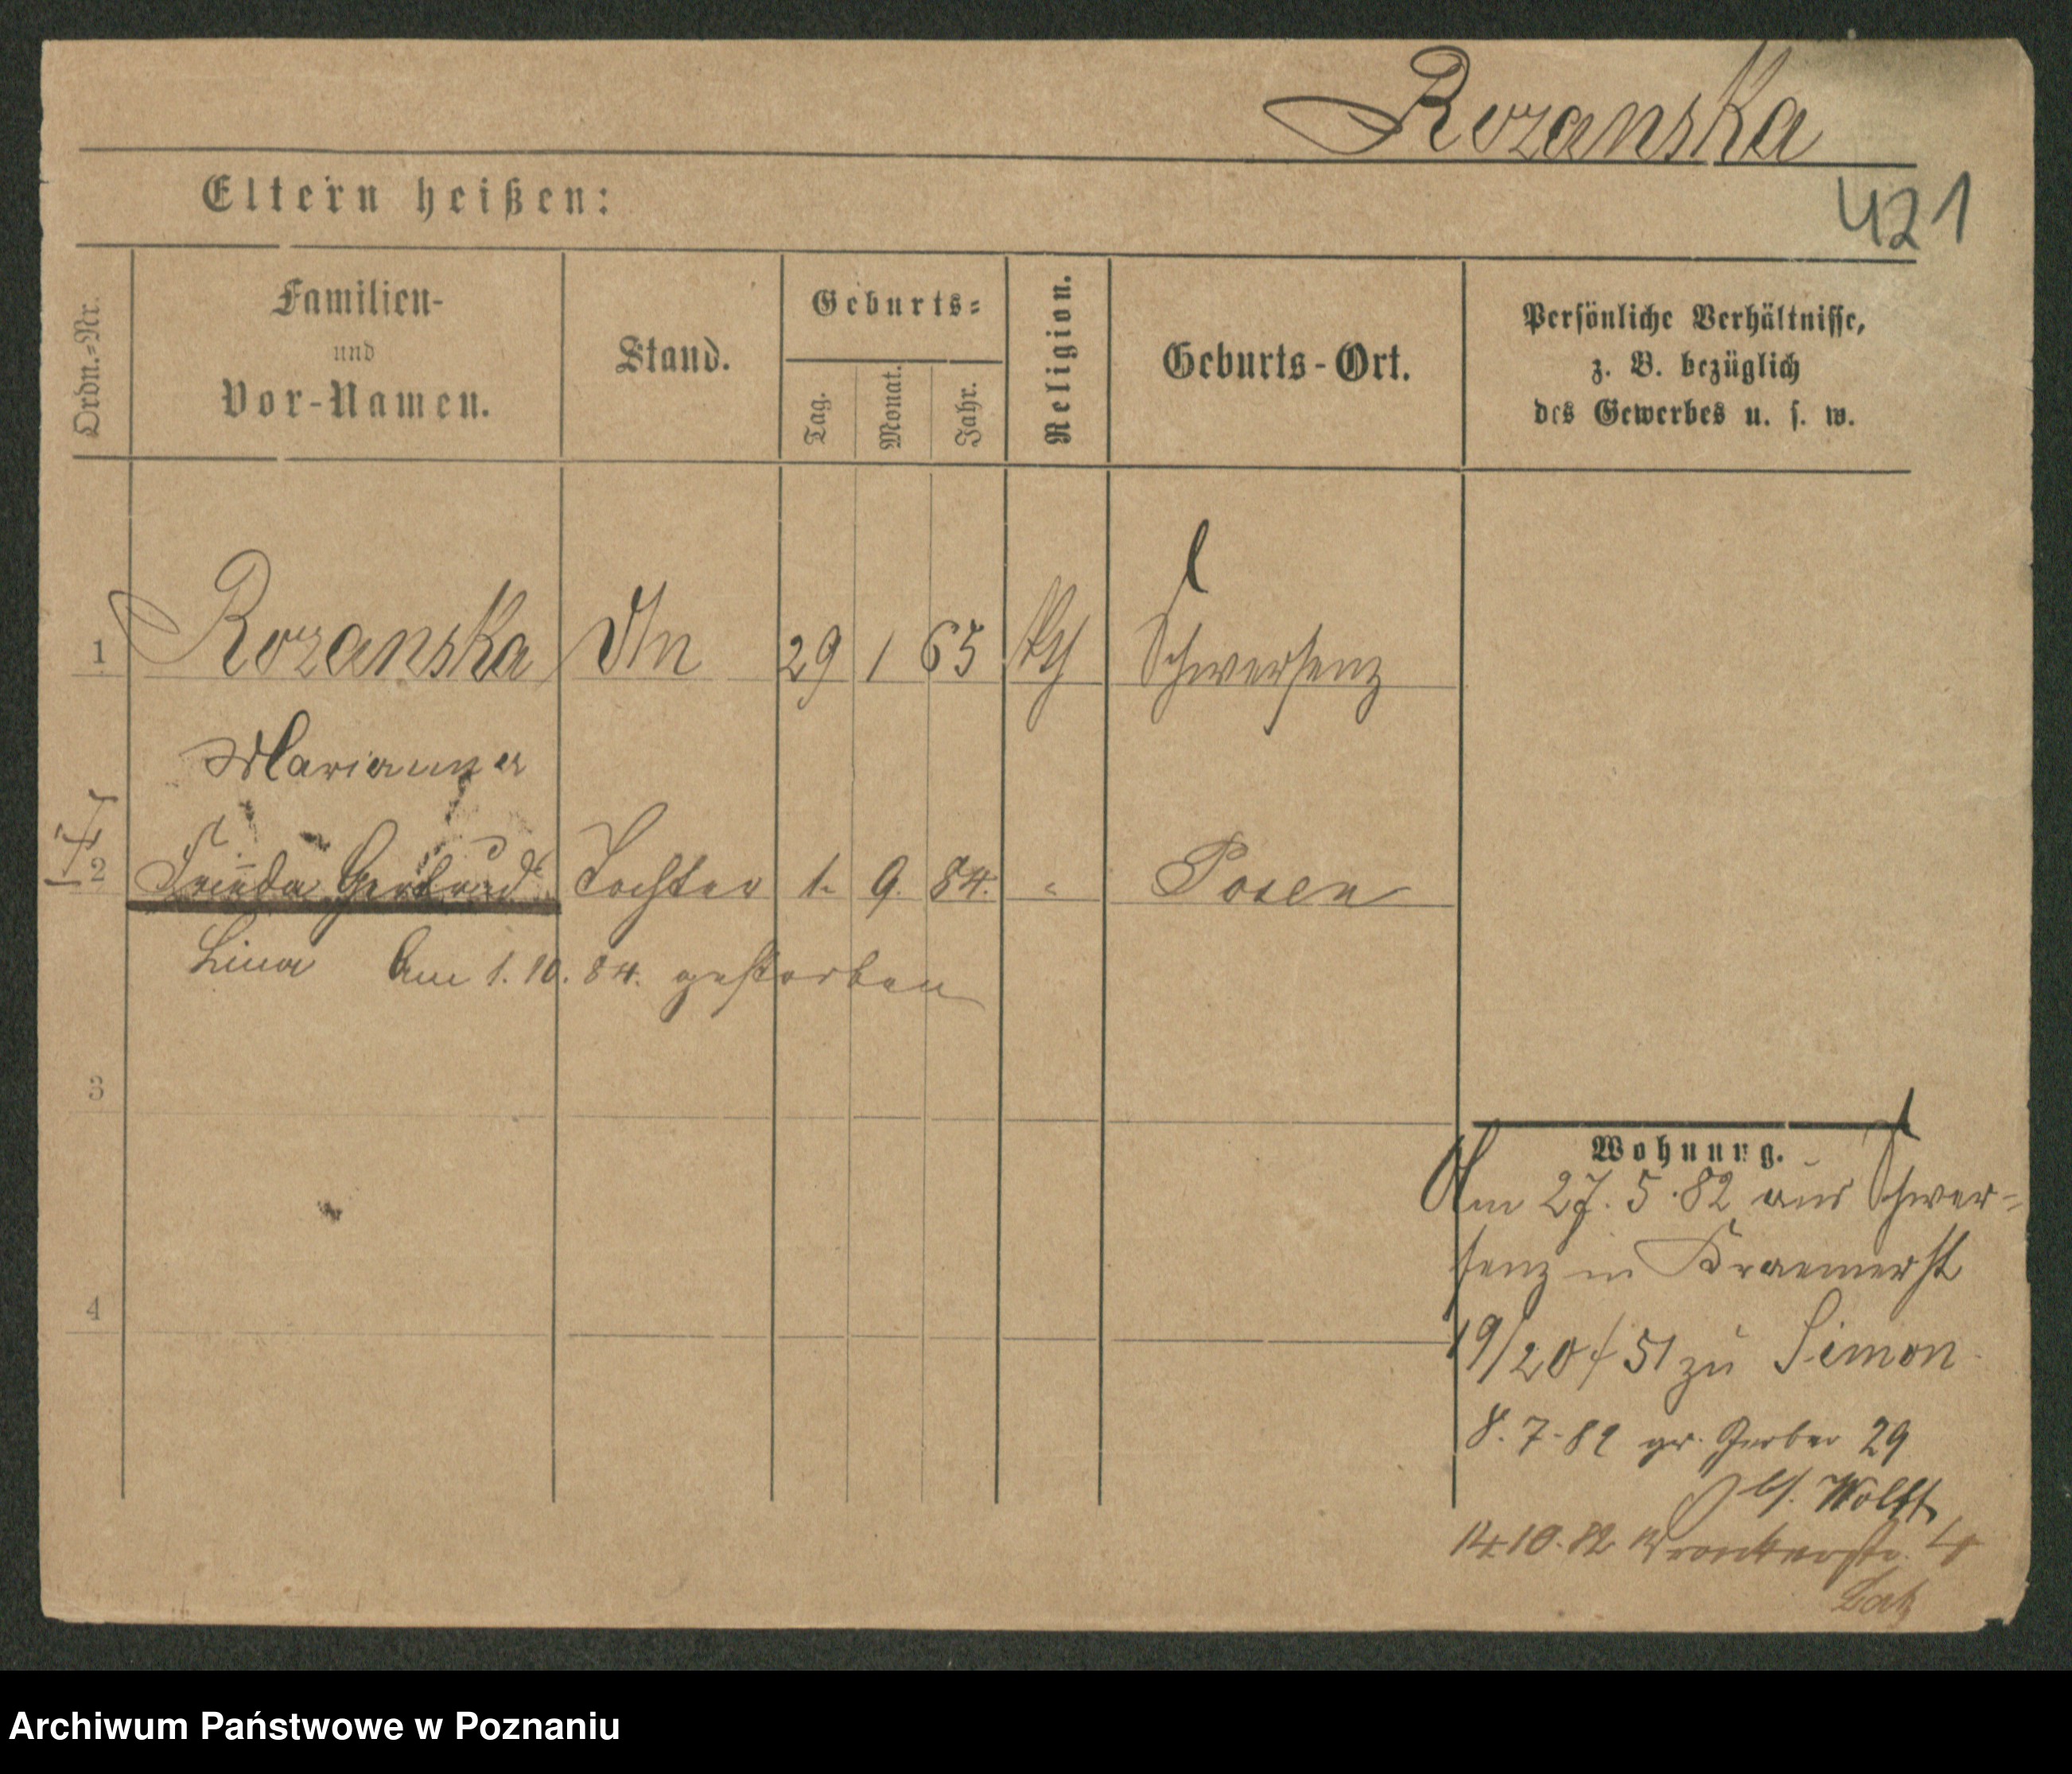 Rozanska
421
Eltern heißen:
Ordn.-Nr.
Familien-
und
Vor-Namen.
Stand.
Geburts-
Tag.
Monat.
Jahr.
Religion.
Geburts-Ort.
Persönliche Verhältnisse,
z. B. bezüglich
des Gewerbes u. s. w.
1 Rozanska 29 1 65 Schwersenz
Marianna
2 Frieda Gertrud Tochter 1. 9. 84. " Posen
Lina Am 1.10.84. gestorben
3
Wohnung.
Am 27.5.82 aus Schwer-
senz in Kraemerst
4
19/20 / 51 zu Simon
8.7.82 gr. Gerber 29
bei Wolff
14.10.82 Wronkerstr. 4
Archiwum Państwowe w Poznaniu